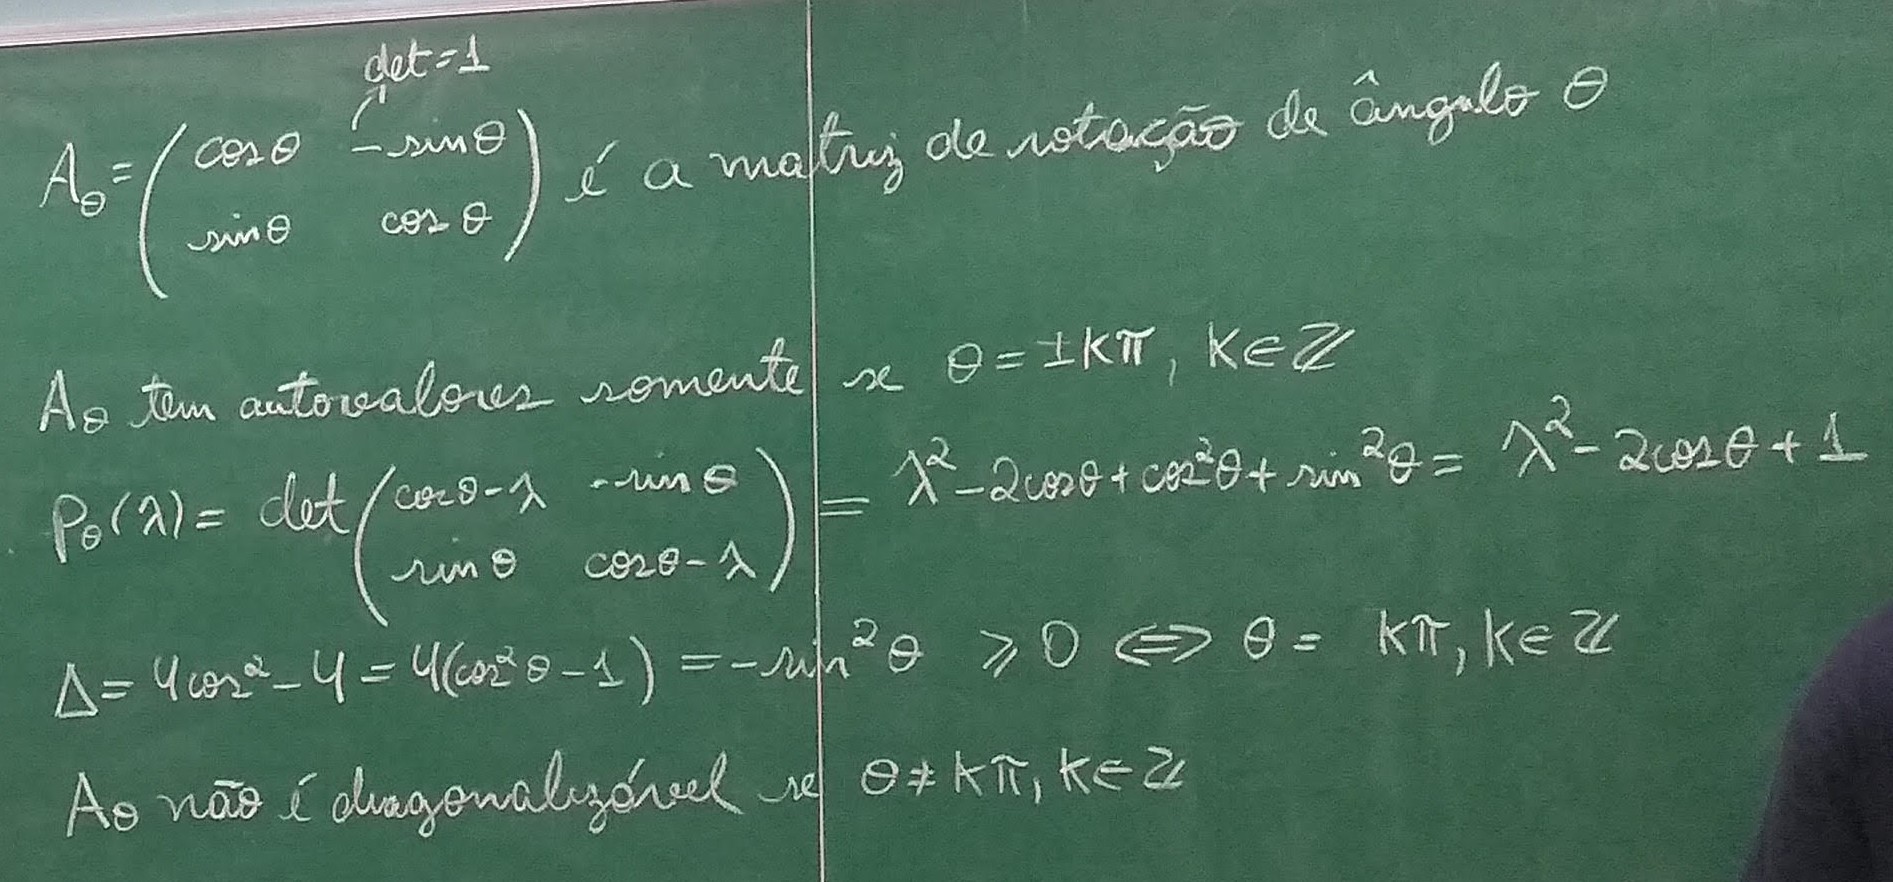 det=1
A_θ = ( cosθ -sinθ
sinθ cosθ ) é a matriz de rotação de ângulo θ
A_θ tem autovalores somente se θ = ±kπ, k∈ℤ
P_θ(λ) = det ( cosθ-λ -sinθ
sinθ cosθ-λ ) = λ² - 2cosθ + cos²θ + sin²θ = λ² - 2cosθ + 1
Δ = 4cos² - 4 = 4(cos²θ - 1) = -sin²θ ⩾ 0 ⇔ θ = kπ, k∈ℤ
A_θ não é diagonalizável se θ ≠ kπ, k∈ℤ